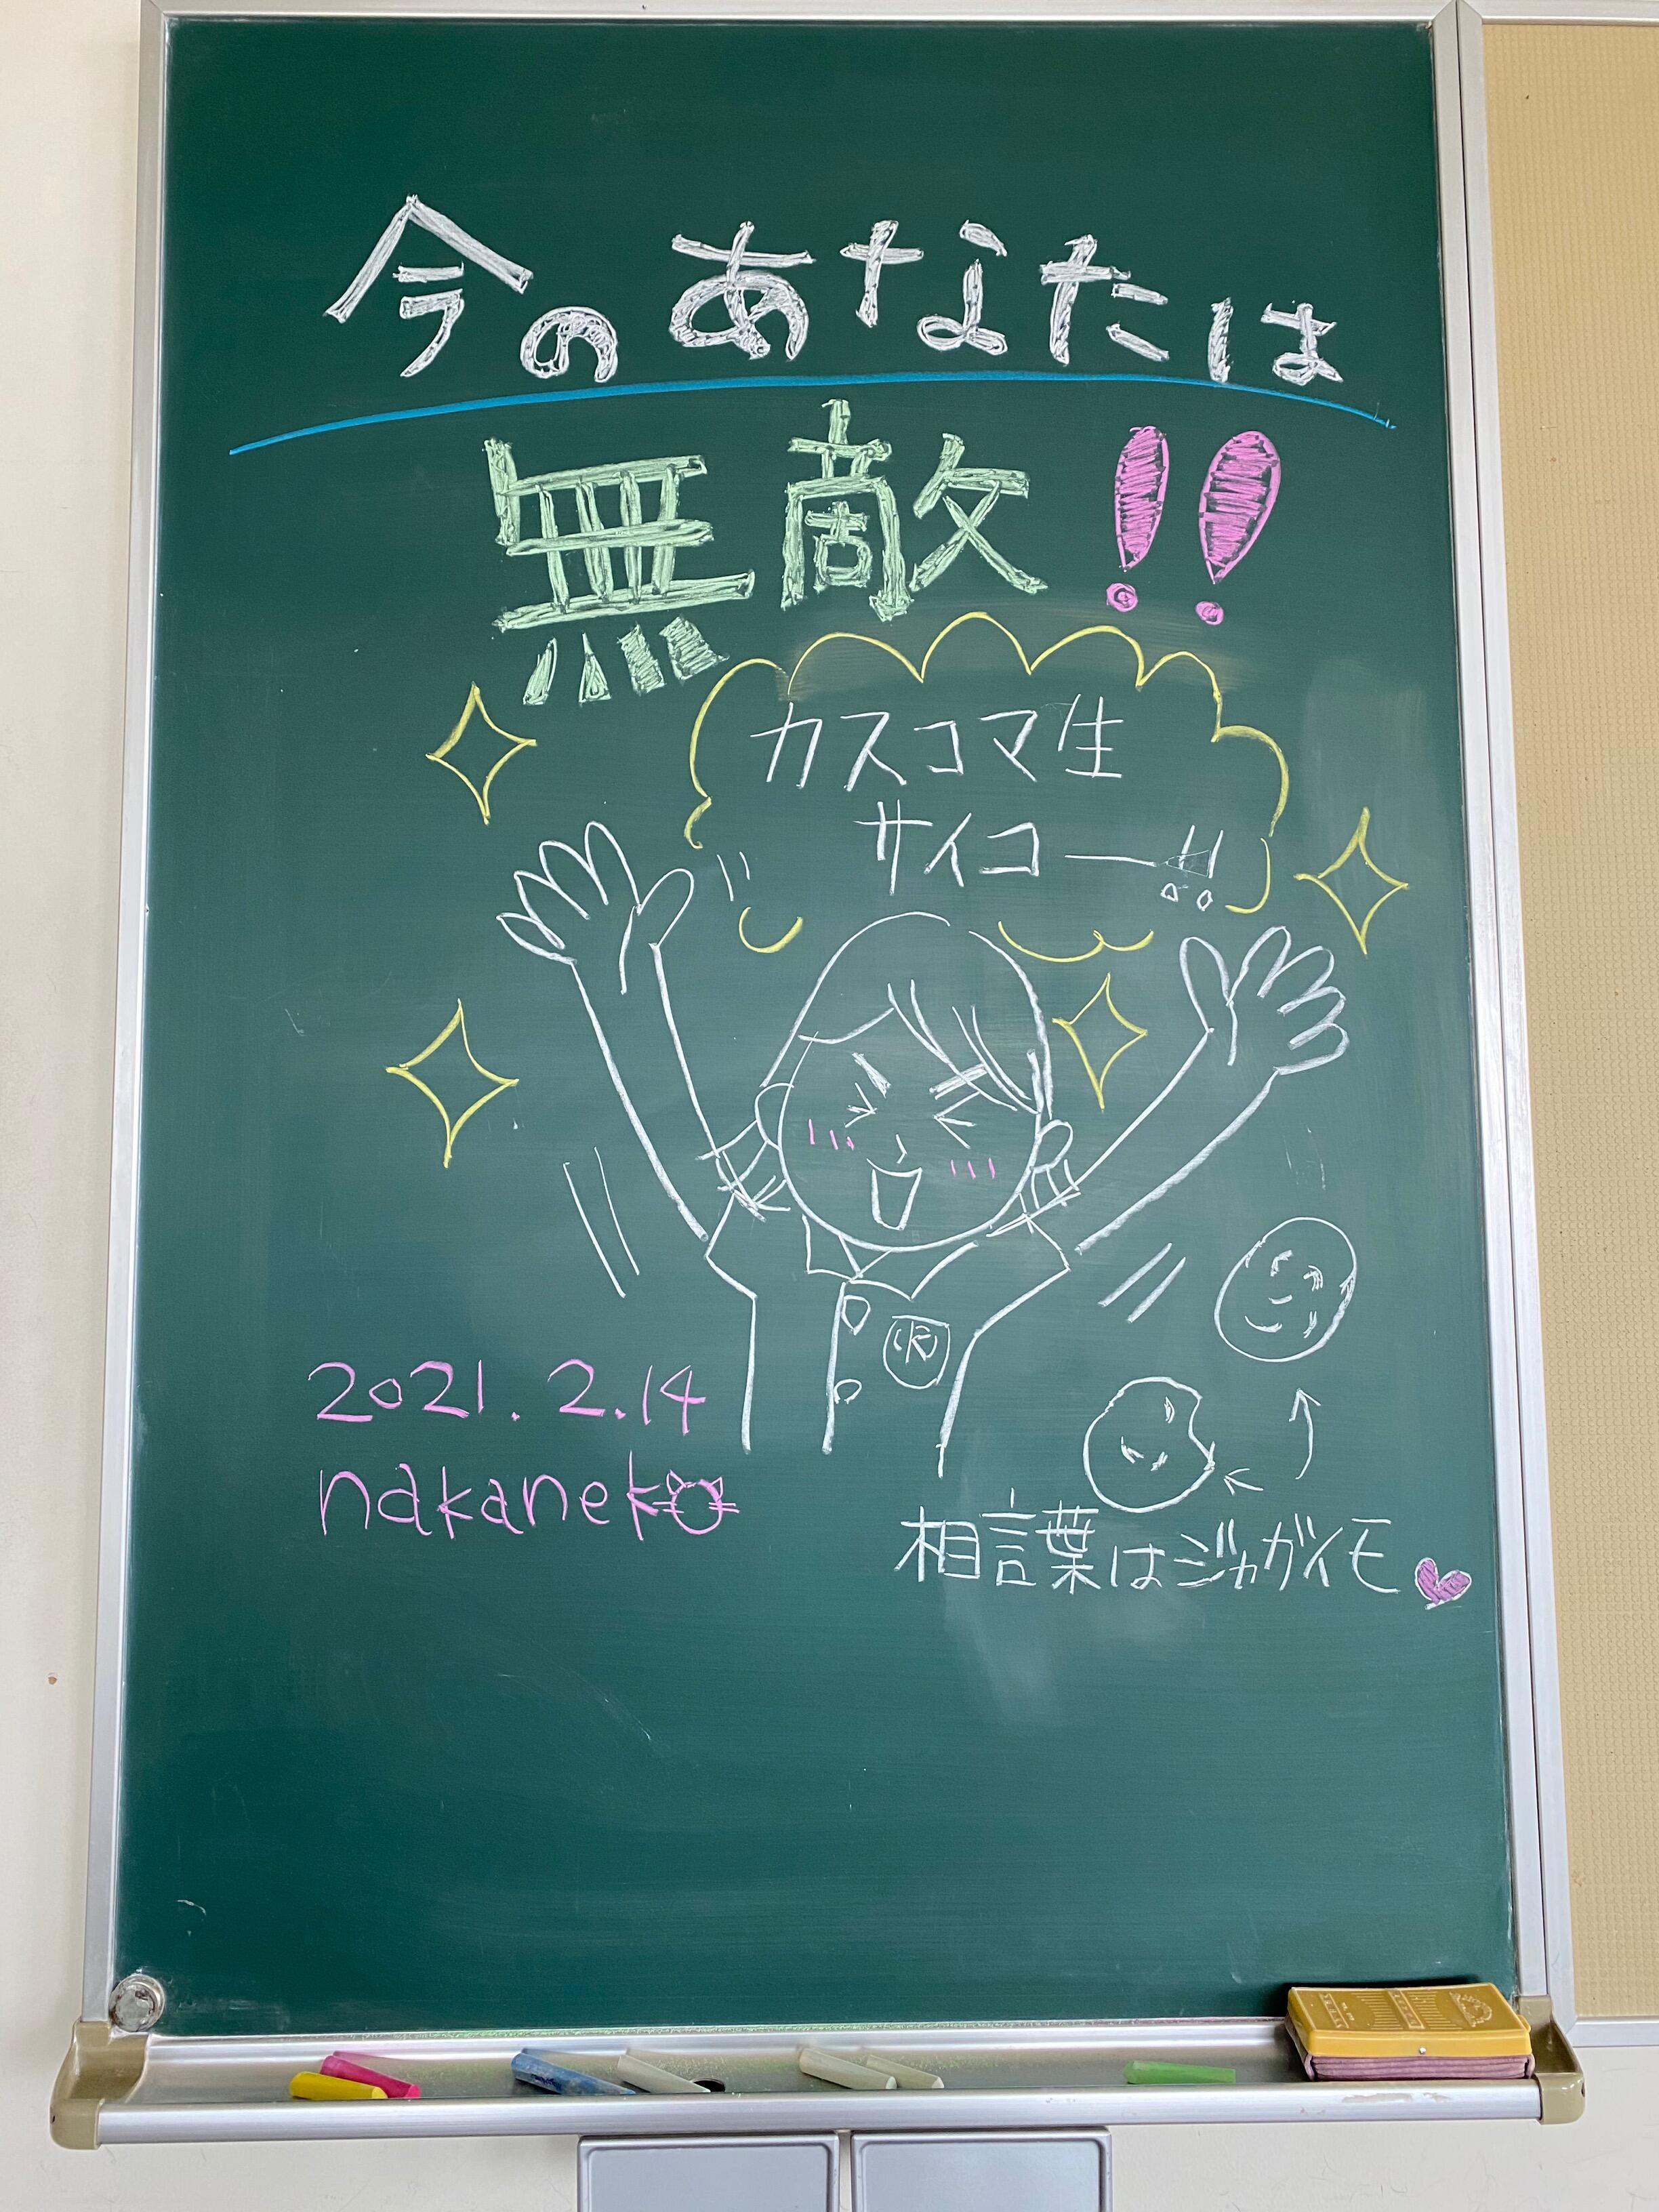 今のあなたは
無敵!!
カスコマ生
サイコー!!
2021.2.14
nakaneko
相言葉はジャガイモ